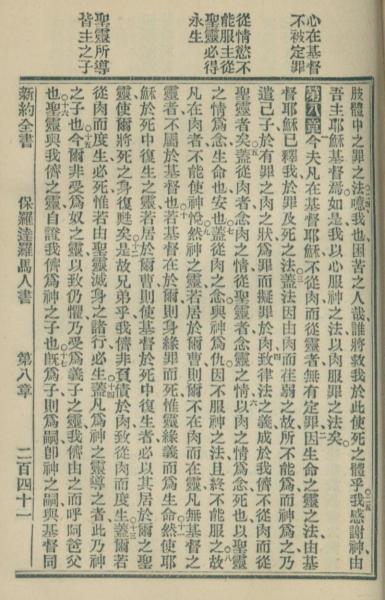 心在基督
不被定罪
從情慾不
能服主從
聖靈必得
永生
聖靈所導
皆主之子
肢體中之罪之法噫我也困苦之人哉誰將救我於此使死之體乎我感謝神由
吾主耶穌基督焉如是我以心服神之法以肉服罪之法矣
第八章今夫凡在基督耶穌不從肉而從靈者無有定罪因生命之靈之法由基
督耶穌已釋我於罪及死之法蓋法因由肉而在弱之故所不能爲而神爲之乃
遣己子於有罪之肉之狀爲罪而擬罪於肉致律法之義成於我儕不從肉而從
聖靈者矣蓋從肉者念肉之情從聖靈者念靈之情以肉之情爲念死也以聖靈
之情爲念生命也安也蓋從肉之念與神爲仇因不服神之法且終不能服之故
凡在肉者不能使神悅然神之靈若居於爾曹則爾不在肉而在靈凡無基督之
靈者不屬於基督也若基督在於爾則身緣罪而死惟靈緣義而爲生命然使耶
穌於死中復生之靈若居於爾曹則使基督於死中復生者必以其居於爾之聖
靈使爾將死之身復甦矣是故兄弟乎我儕非負債於肉致從肉而度生蓋爾若
從肉而度生必死惟若由聖靈滅身之諸行必生蓋凡爲神之靈導之者此乃神
之子也今爾非受爲奴之靈以致仍懼乃受爲義子之靈我儕由之而呼阿爸父
也聖靈與我儕之靈自證我儕爲神之子也旣爲子則爲嗣卽神之嗣與基督同
新約全書 保羅達羅馬人書 第八章 二百四十一